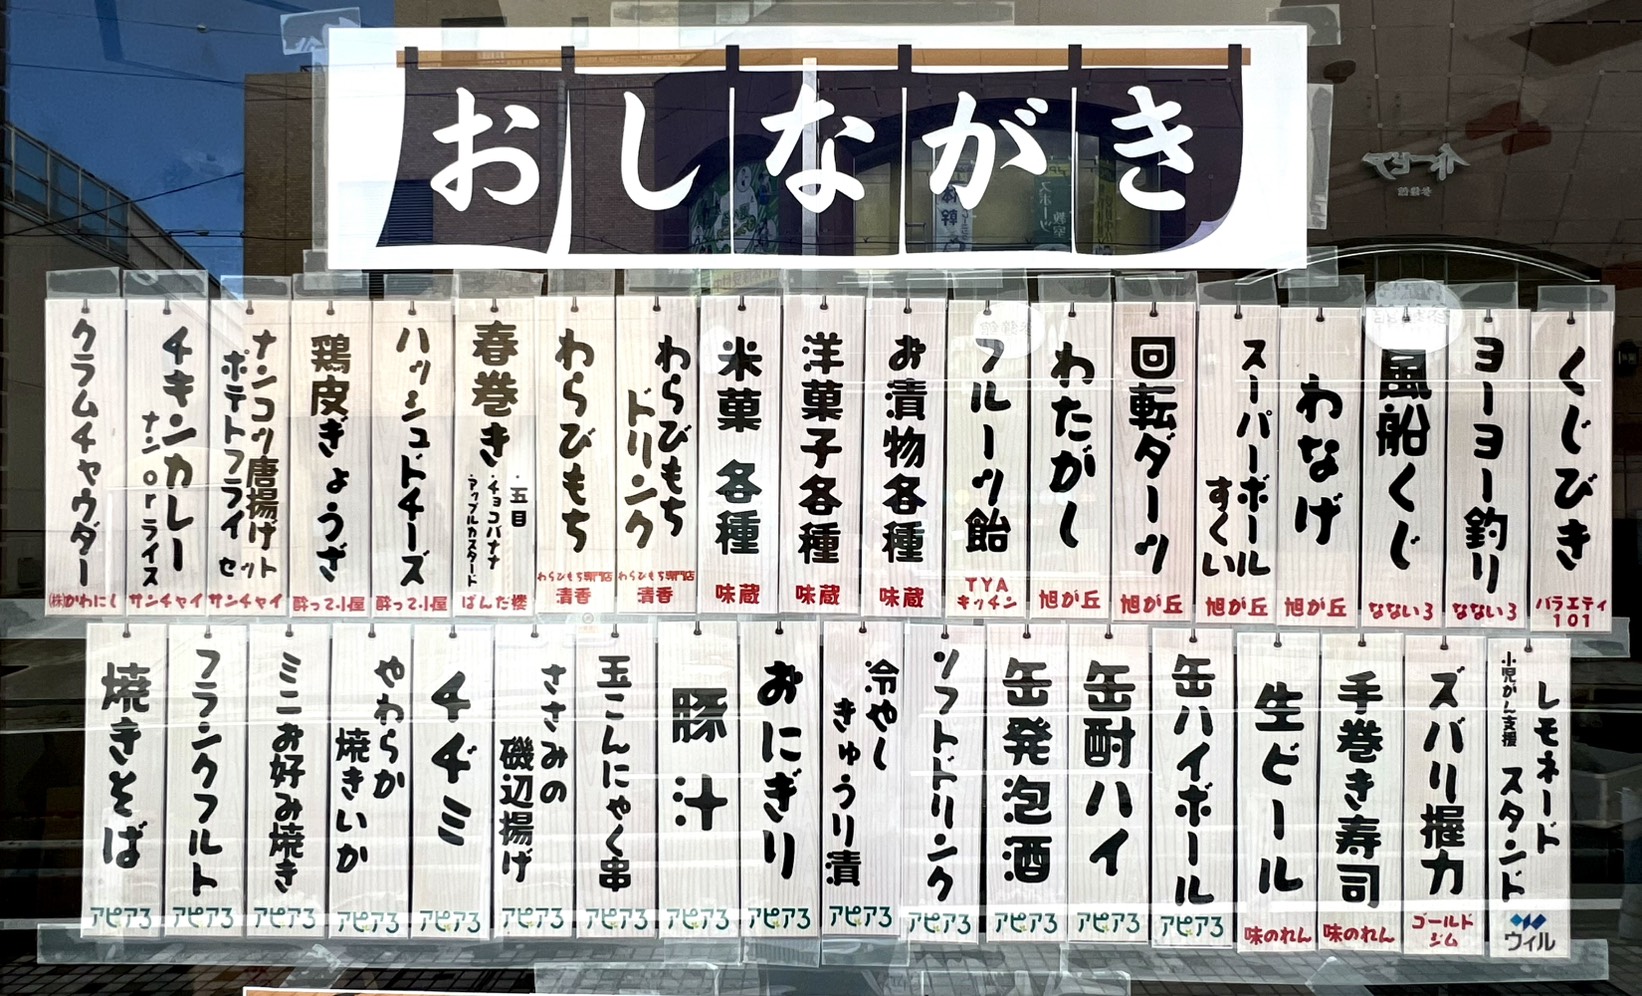 おしながき
くじびき
バラエティ
101
ヨーヨー釣り
なないろ
風船くじ
なないろ
わなげ
旭が丘
スーパーボール
すくい
旭が丘
回転ダーツ
旭が丘
わたがし
旭が丘
フルーツ飴
TYA
キッチン
お漬物各種
味蔵
洋菓子各種
味蔵
米菓 各種
味蔵
わらびもち
ドリンク
わらびもち専門店
清香
わらびもち
わらびもち専門店
清香
春巻き
・五目
・チョコバナナ
・アップルカスタード
ぱんだ楼
ハッシュドチーズ
酔って小屋
鶏皮ぎょうざ
酔って小屋
ナンコツ唐揚げ
ポテトフライ セット
サンチャイ
チキンカレー
ナンorライス
サンチャイ
クラムチャウダー
(株)かわにし
レモネード
スタンド
小児がん支援
ウィル
ズバリ握力
ゴールド
ジム
手巻き寿司
味のれん
生ビール
味のれん
缶ハイボール
アピア3
缶酎ハイ
アピア3
缶発泡酒
アピア3
ソフトドリンク
アピア3
冷やし
きゅうり漬
アピア3
おにぎり
アピア3
豚汁
アピア3
玉こんにゃく串
アピア3
ささみの
磯辺揚げ
アピア3
チヂミ
アピア3
やわらか
焼きいか
アピア3
ミニお好み焼き
アピア3
フランクフルト
アピア3
焼きそば
アピア3